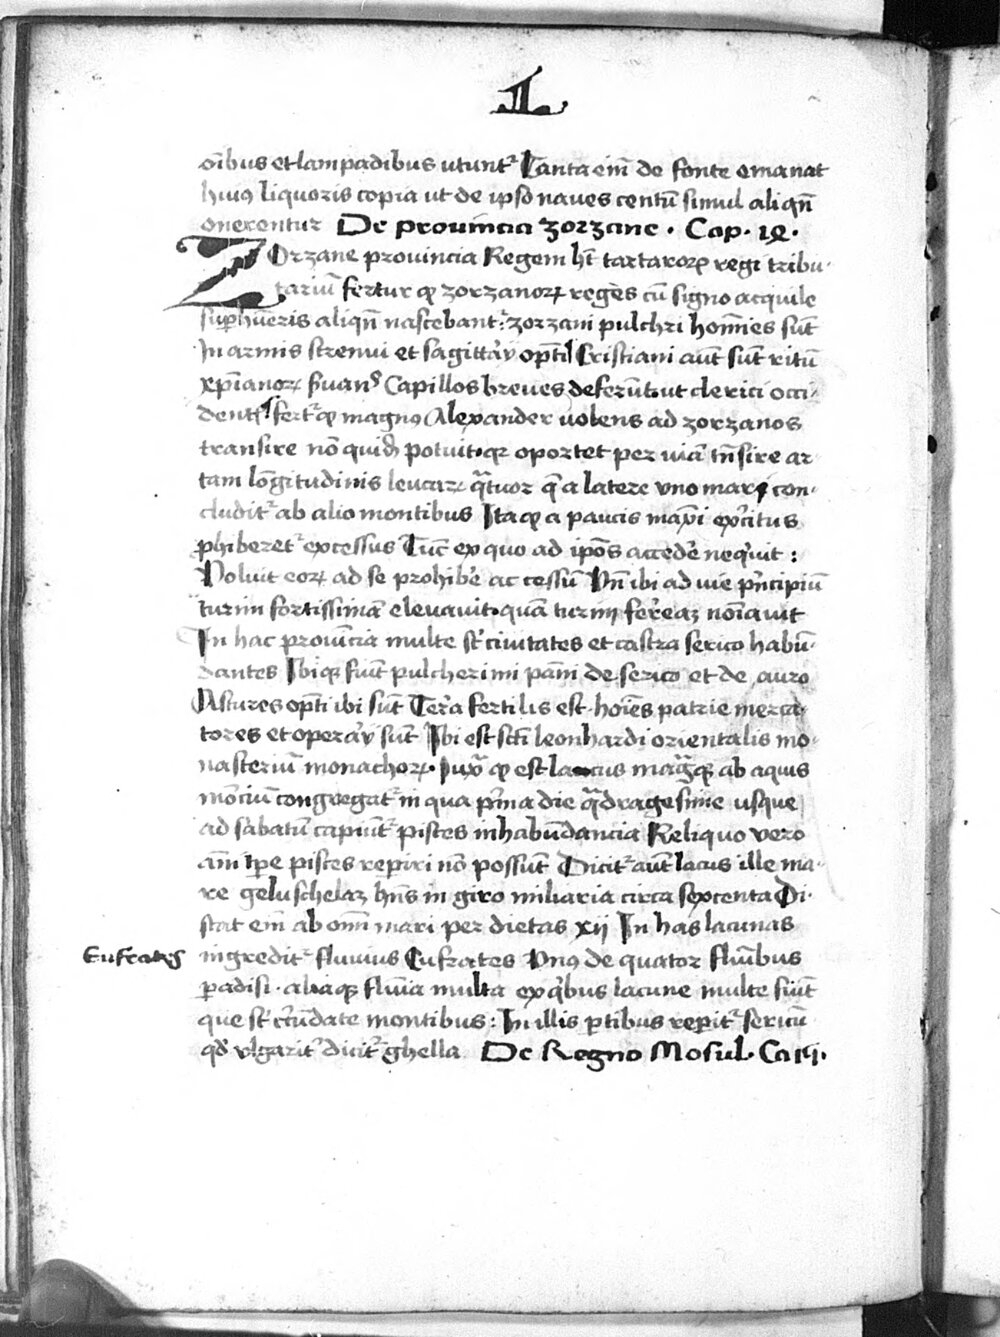 I
oībus et lampadibus utunt᷑ Tanta eī̄ de fonte emanat
huiꝰ liquoris copia ut de ipso naues centū simul aliqn̄
onerentur De prouincia zorzane . Cap . 
Zorzane prouincia Regem ht̄ tartaroꝝ regi tribu-
tariū fertur ꝙ zorzanoꝝ reges cū signo acquile
sup hūeris aliqn̄ nascebant᷑: zorzani pulchri homīes sūt
In armis strenui et sagittar̄ opti Cristiani aūt sūt ritū
xp̄ianoꝝ ẜuanꝰ Capillos breues deferūt ut clerici occi-
dent fert᷑ ꝙ magnꝰ Alexander uolens ad zorzanos
transire nō quid potuit qꝛ oportet per uiā trn̄sire ar
tam lōgitudinis leucaꝝ qͣtuor q̄ a latere uno mari con-
cludit᷑ ab alio montibus Itaꝙ a paucis maxi exc̄itus
ꝓhiberet᷑ excessus Tūc ex quo ad ipōs accedē neqiuit :
Voluit eoꝝ ad se prohibē ac cessū Vn̄ ibi ad uie pn̄cipiū
turim fortissimā eleuauit quā turim fereaꝫ noīauit
In hac prouīcia multe st̄ ciuitates et castra serico habū-
dantes Ibiqꝫ fiūt pulcherimi pāni de serico et de auro
Astures opti ibi sūt Terra fertilis est hoīes patrie merca-
tores et operar̄ sūt Ibi est scti leonhardi orientalis mo-
nasteriū monachoꝝ . Iuxͣ ꝙ est lacus magͣꝫ ab aquis
mōciū congregat᷑ in qua pͥma die qͣdragesime usque
ad sabatū capiūt᷑ pistes in habūdancia Reliquo vero
anī tp̄e pistes reperiri nō possūt Dicit᷑ aūt lacus ille ma-
re geluschelaꝫ hn̄s in giro miliaria circa sexcenta Di-
stat eī̄ ab omī mari per dietas xij In has lacunas
Eufrates
ingredit᷑ fluuius Eufrates Vnꝰ de quator flūibus
ꝑadisi . aliaqꝫ flūia multa ex qͥbus lacune multe fiūt
que st̄ circūdate montibus : In illis ꝑtibus reperit᷑ sericū
qd̄ ulgarit᷑ dicit᷑ ghella De Regno Mosul .